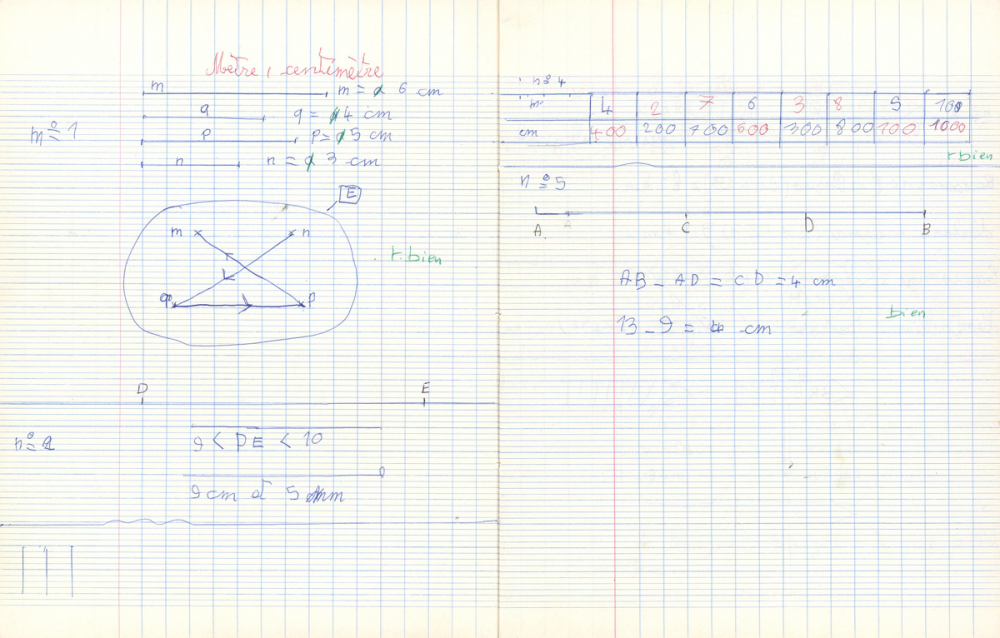 Mètre, centimètre
m m = 6 cm
q q = 4 cm
n° 1
p p = 5 cm
n n = 3 cm
E
m n
t. bien
q p
D E
n° 2
9 < DE < 10
9 cm et 5 mm
n° 4
m 4 2 7 6 3 8 9 100
cm 400 200 700 600 300 800 100 1000
t bien
n° 5
A C D B
AB - AD = CD = 4 cm
13 - 9 = 4 cm
bien